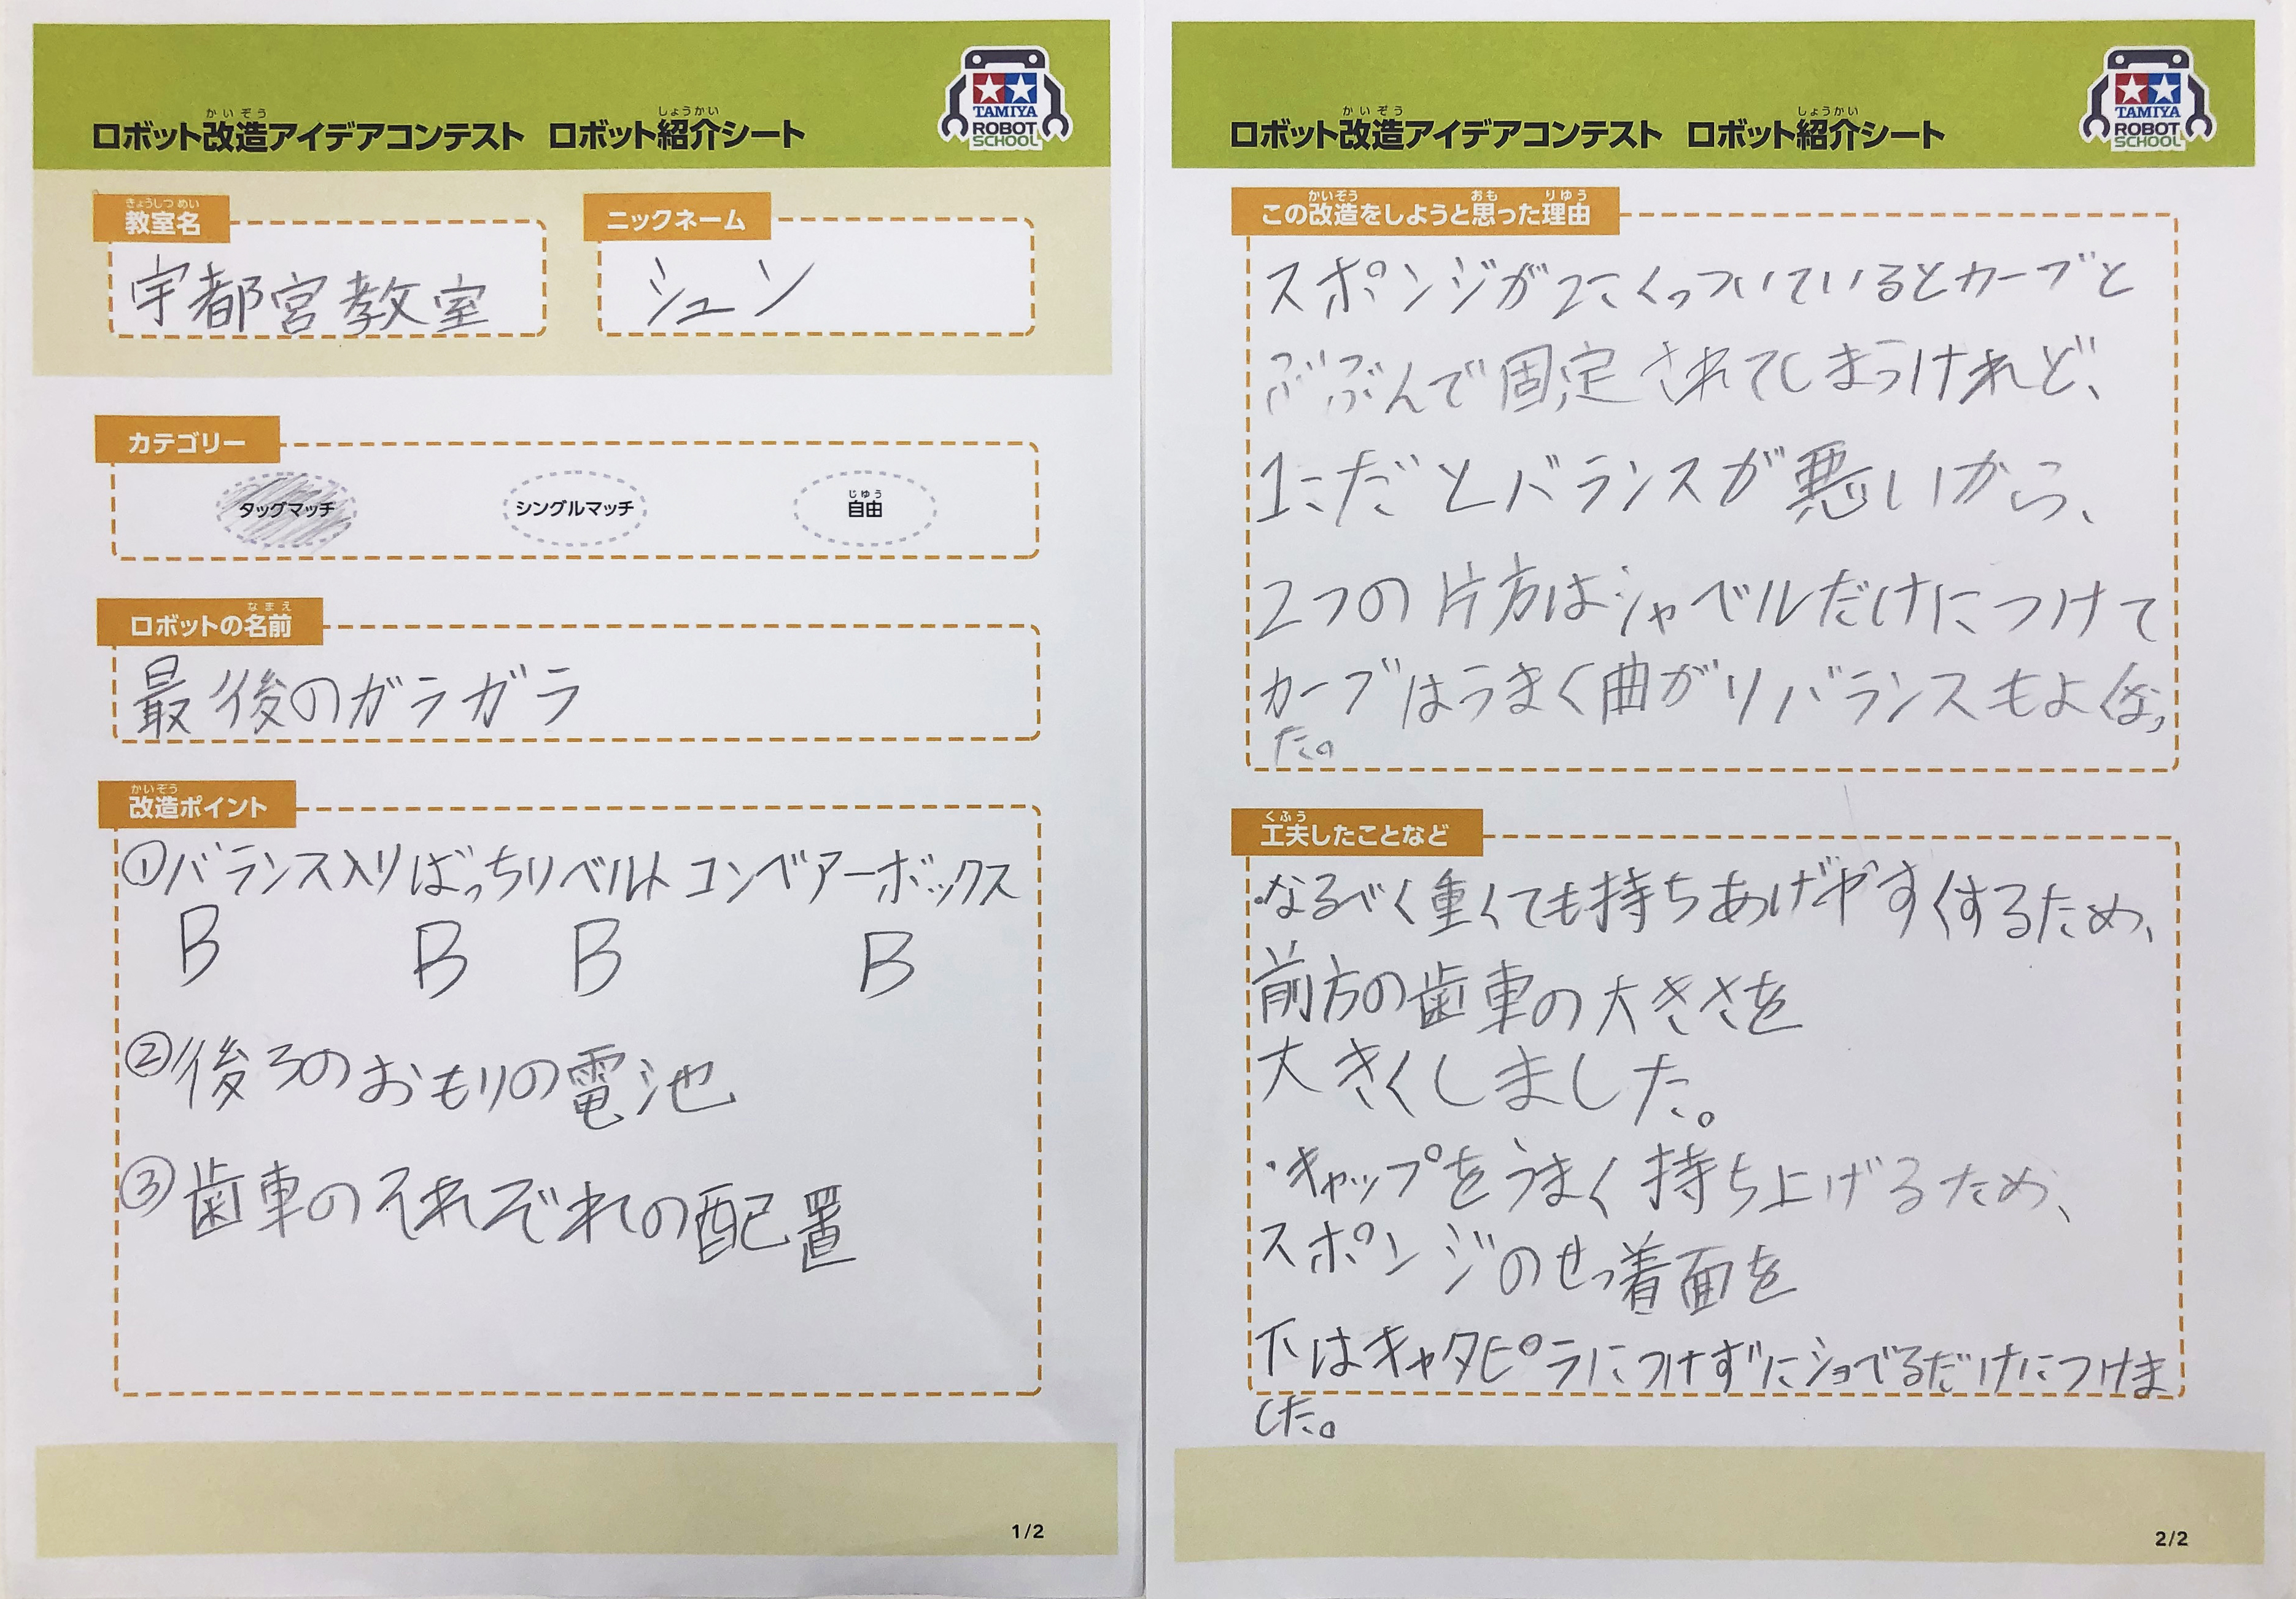 かいぞう しょうかい
ロボット改造アイデアコンテスト ロボット紹介シート
TAMIYA
ROBOT
SCHOOL
きょうしつ めい
教室名
宇都宮教室
ニックネーム
シュン
カテゴリー
タッグマッチ
シングルマッチ
じゆう
自由
なまえ
ロボットの名前
最後のガラガラ
かいぞう
改造ポイント
①バランス入りばっちりベルトコンベアーボックス
B B B B
②後ろのおもりの電池
③歯車のそれぞれの配置
1/2
かいぞう しょうかい
ロボット改造アイデアコンテスト ロボット紹介シート
TAMIYA
ROBOT
SCHOOL
かいぞう おも りゆう
この改造をしようと思った理由
スポンジが2こくっついているとカーブと
ぶぶんで固定されてしまうけれど、
1こだとバランスが悪いから、
2つの片方はシャベルだけにつけて
カーブはうまく曲がりバランスもよくなっ
た。
くふう
工夫したことなど
・なるべく重くても持ちあげやすくするため、
前方の歯車の大きさを
大きくしました。
・キャップをうまく持ち上げるため、
スポンジのせっ着面を
下はキャタピラにつけずにショベるだけにつけま
した。
2/2